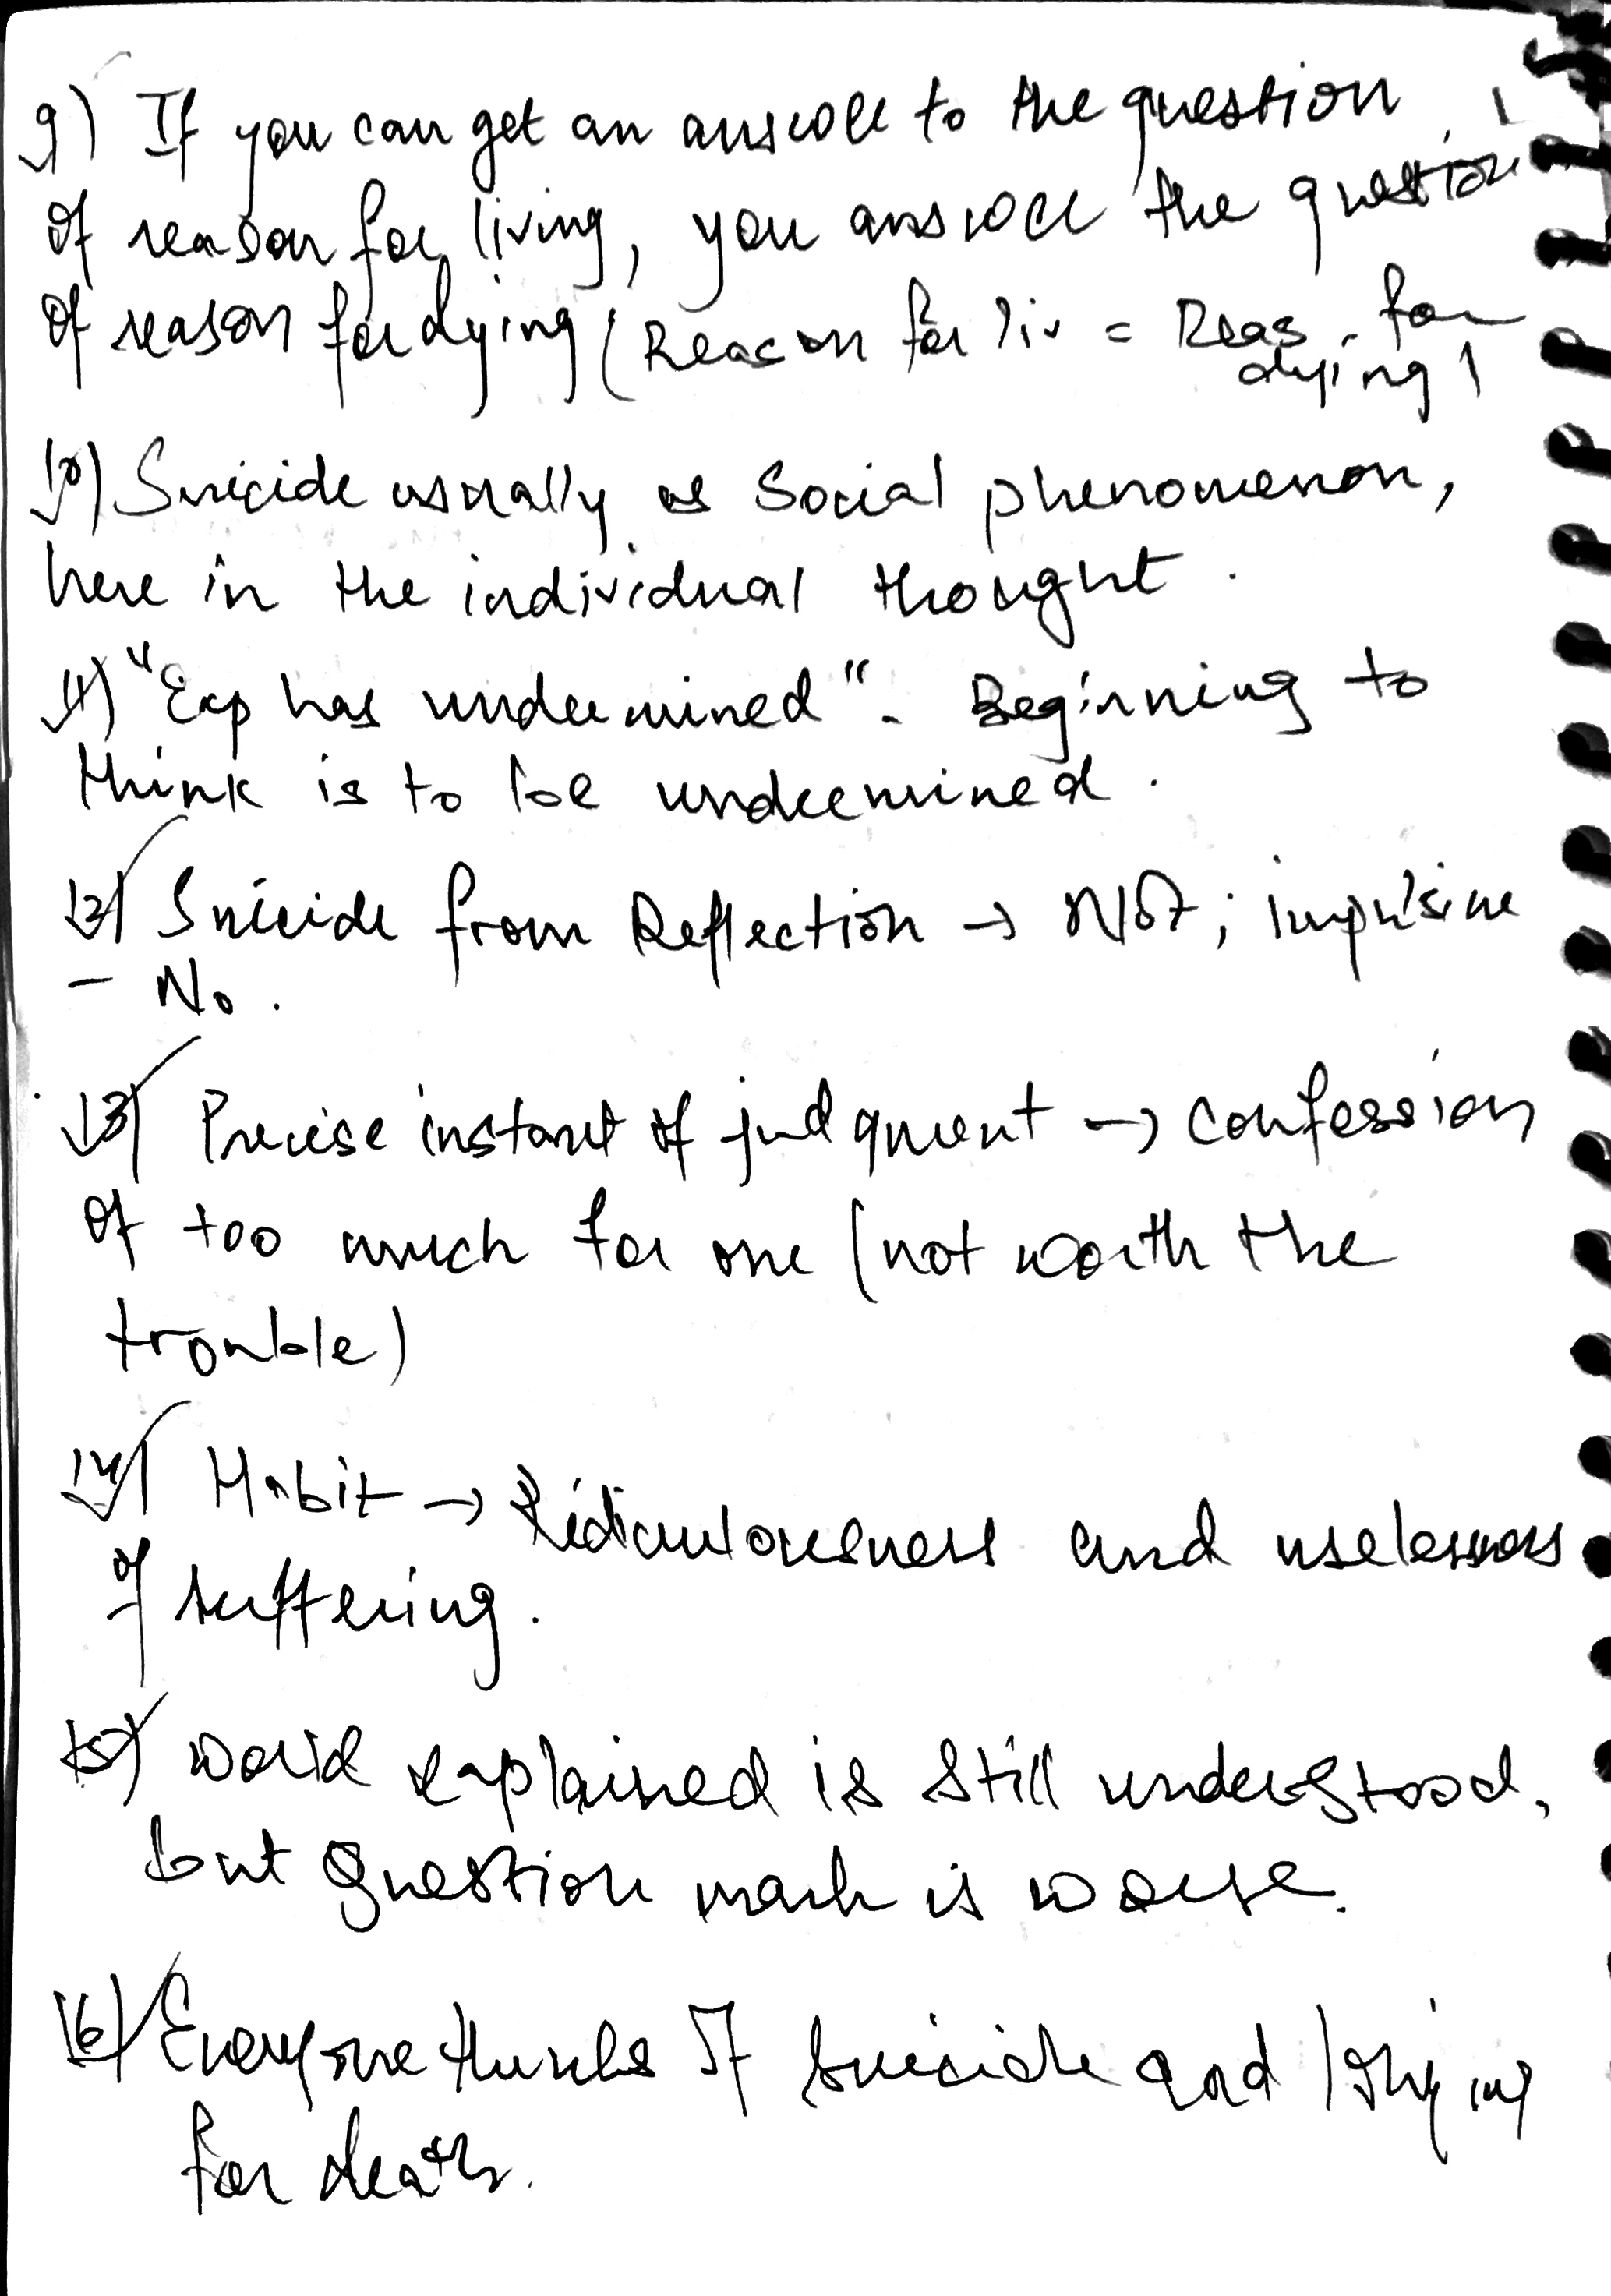 9) If you can get an answer to the question
of reason for living, you answer the question
of reason for dying (Reason for liv = Reas. for
dying)
10) Suicide usually as Social phenomenon,
here in the individual thought.
11) "Exp has undermined". Beginning to
think is to be undermined.
12) Suicide from Reflection → NOT; impulsive
- No.
13) Precise instant of judgment → confession
of too much for one (not worth the
trouble)
14) Habit → Ridiculousness and uselessness
of suffering.
15) World explained is still understood,
but question mark is worse.
16) Everyone thinks of suicide and longing
for death.